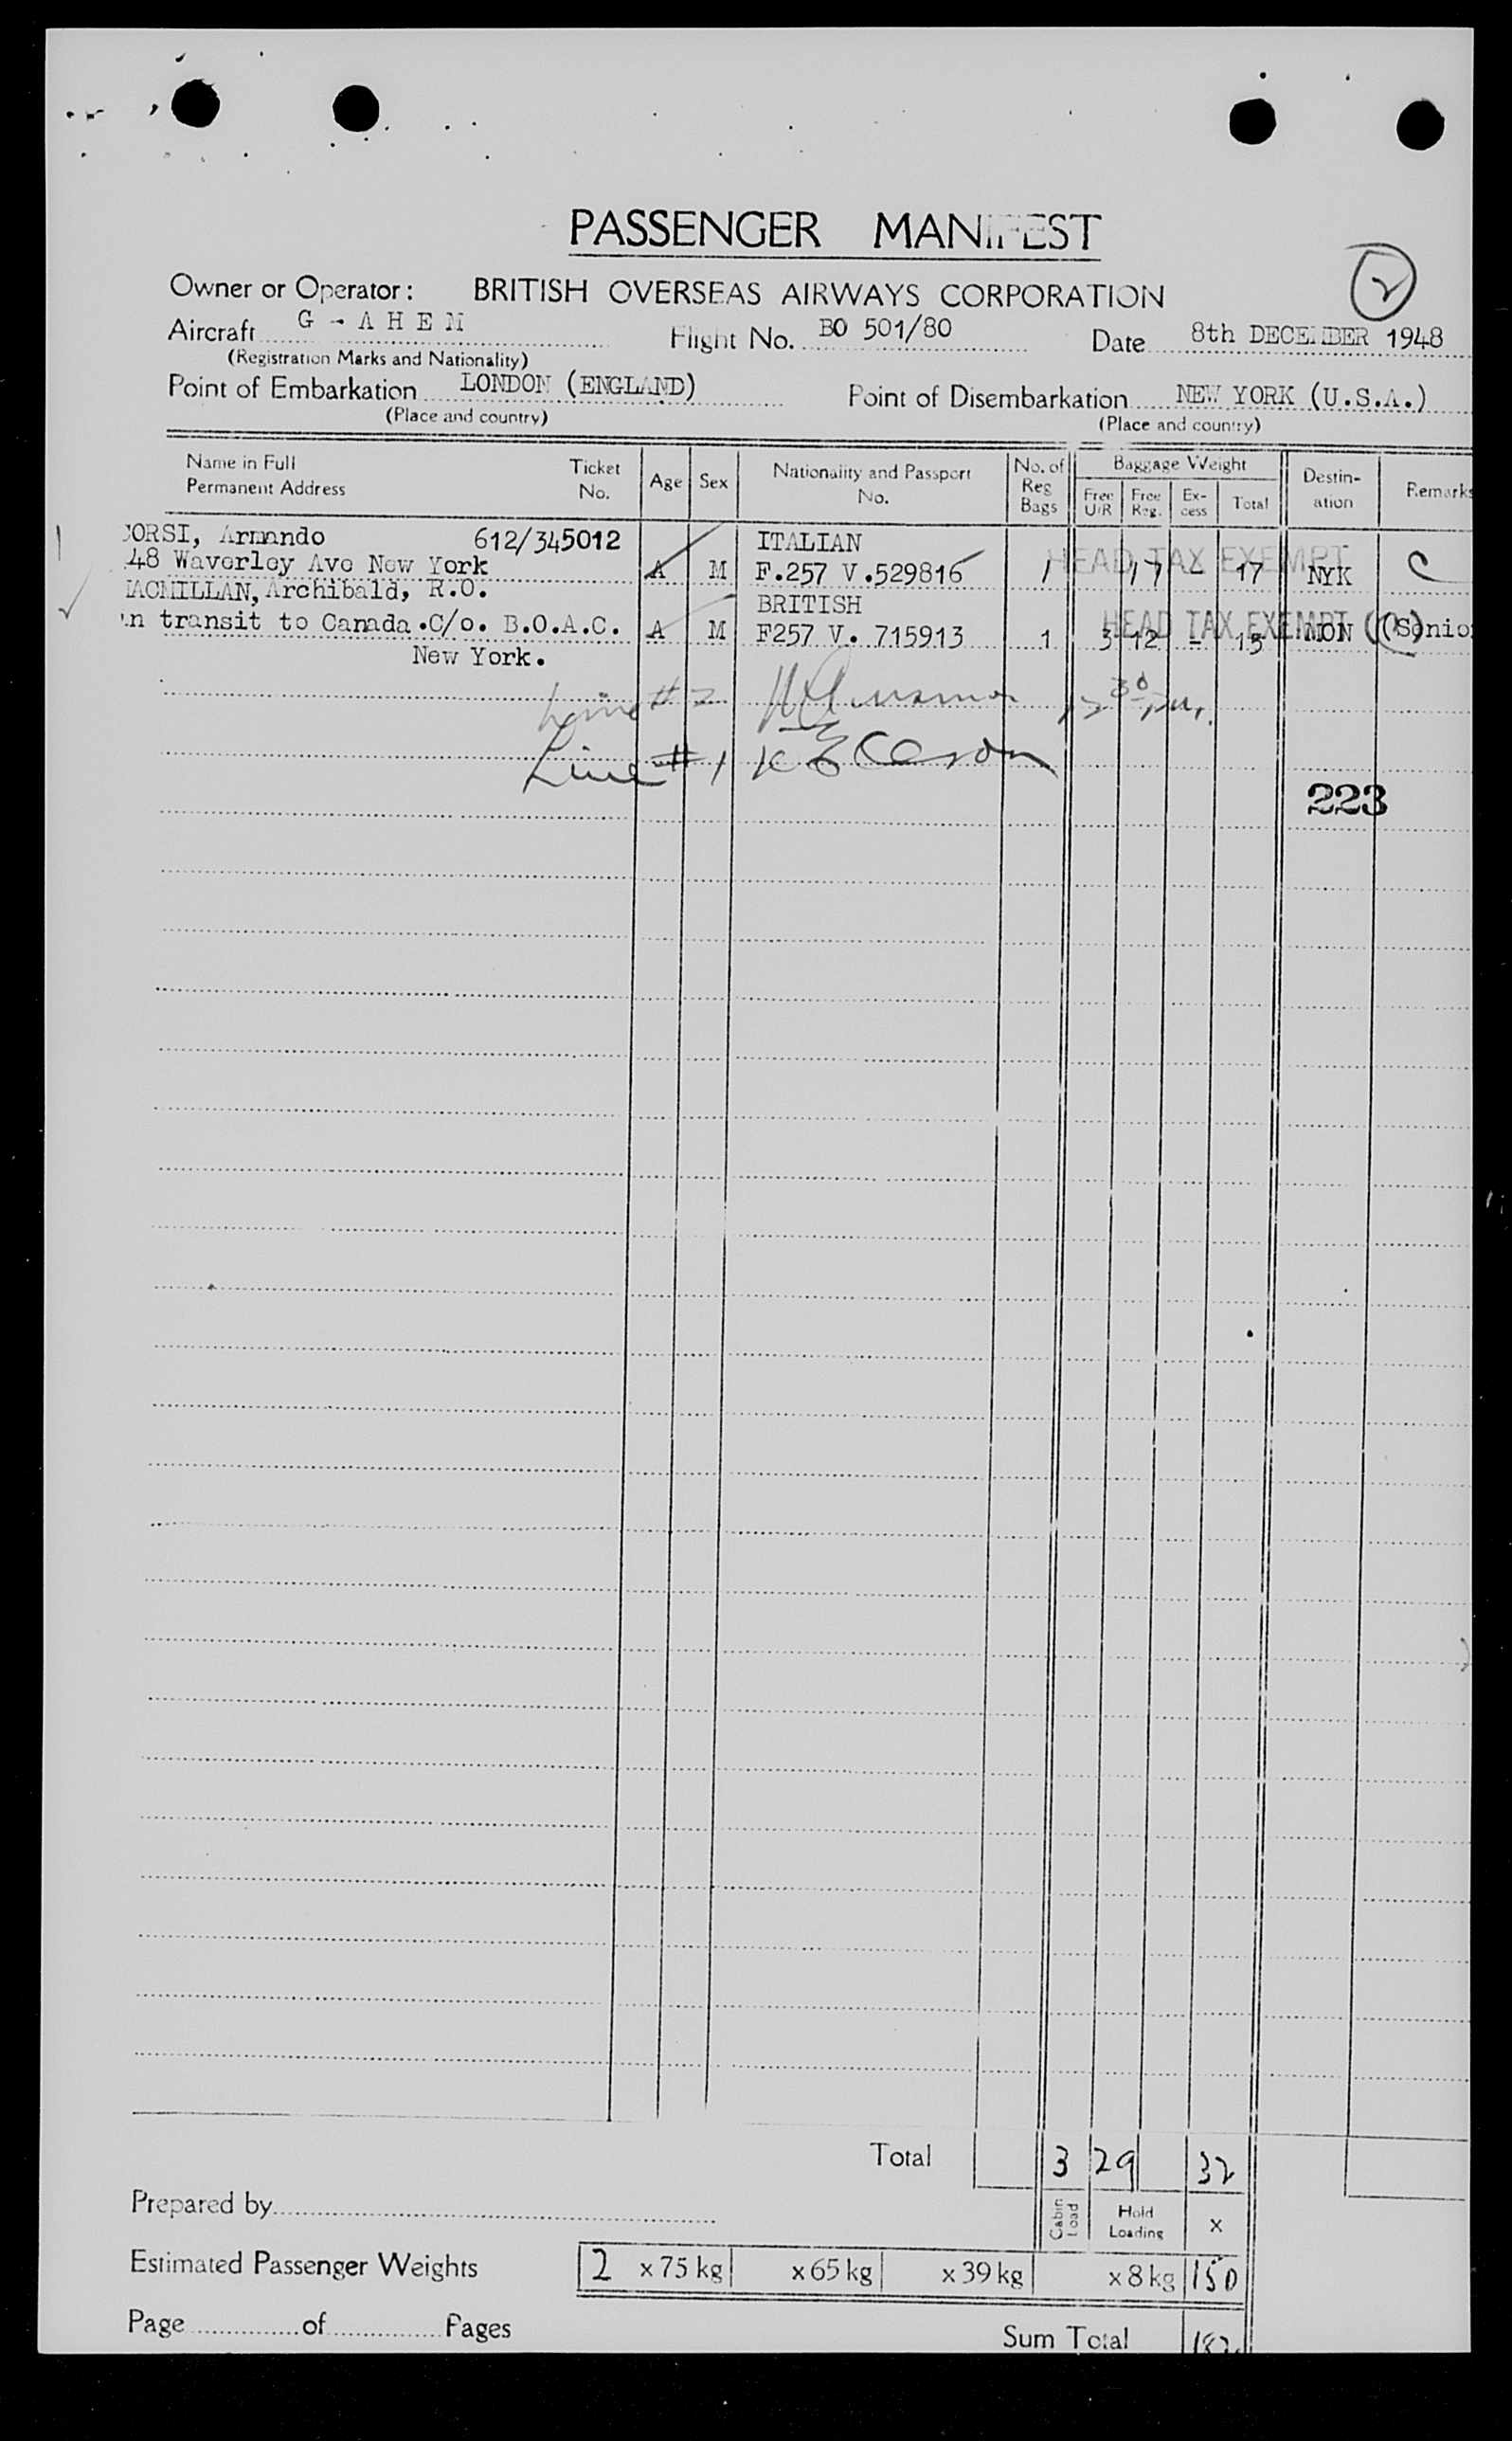 2
PASSENGER MANIFEST
Owner or Operator: BRITISH OVERSEAS AIRWAYS CORPORATION
Aircraft G - A H E M Flight No. BO 501/80 Date 8th DECEMBER 1948
(Registration Marks and Nationality)
Point of Embarkation LONDON (ENGLAND) Point of Disembarkation NEW YORK (U.S.A.)
(Place and country) (Place and country)
Name in Full Permanent Address Ticket No. Age Sex Nationality and Passport No. No. of Reg Bags Baggage Weight Free U/R Free Reg. Ex-cess Total Destin-ation Remarks
CORSI, Armando 612/345012 ITALIAN
48 Waverley Ave New York A M F.257 V.529816 1 HEAD TAX EXEMPT 17 - 17 NYK C
MACMILLAN, Archibald, R.O. BRITISH
in transit to Canada.C/o. B.O.A.C. A M F257 V. 715913 1 3 12 - 15 HEAD TAX EXEMPT MON (Senio
New York.
Line # 2 12 30 p.m.
Line # 1
223
Total 3 29 32
Prepared by Cabin Load Hold Loading x
Estimated Passenger Weights 2 x 75 kg x 65 kg x 39 kg x 8 kg 150
Page of Pages Sum Total 182